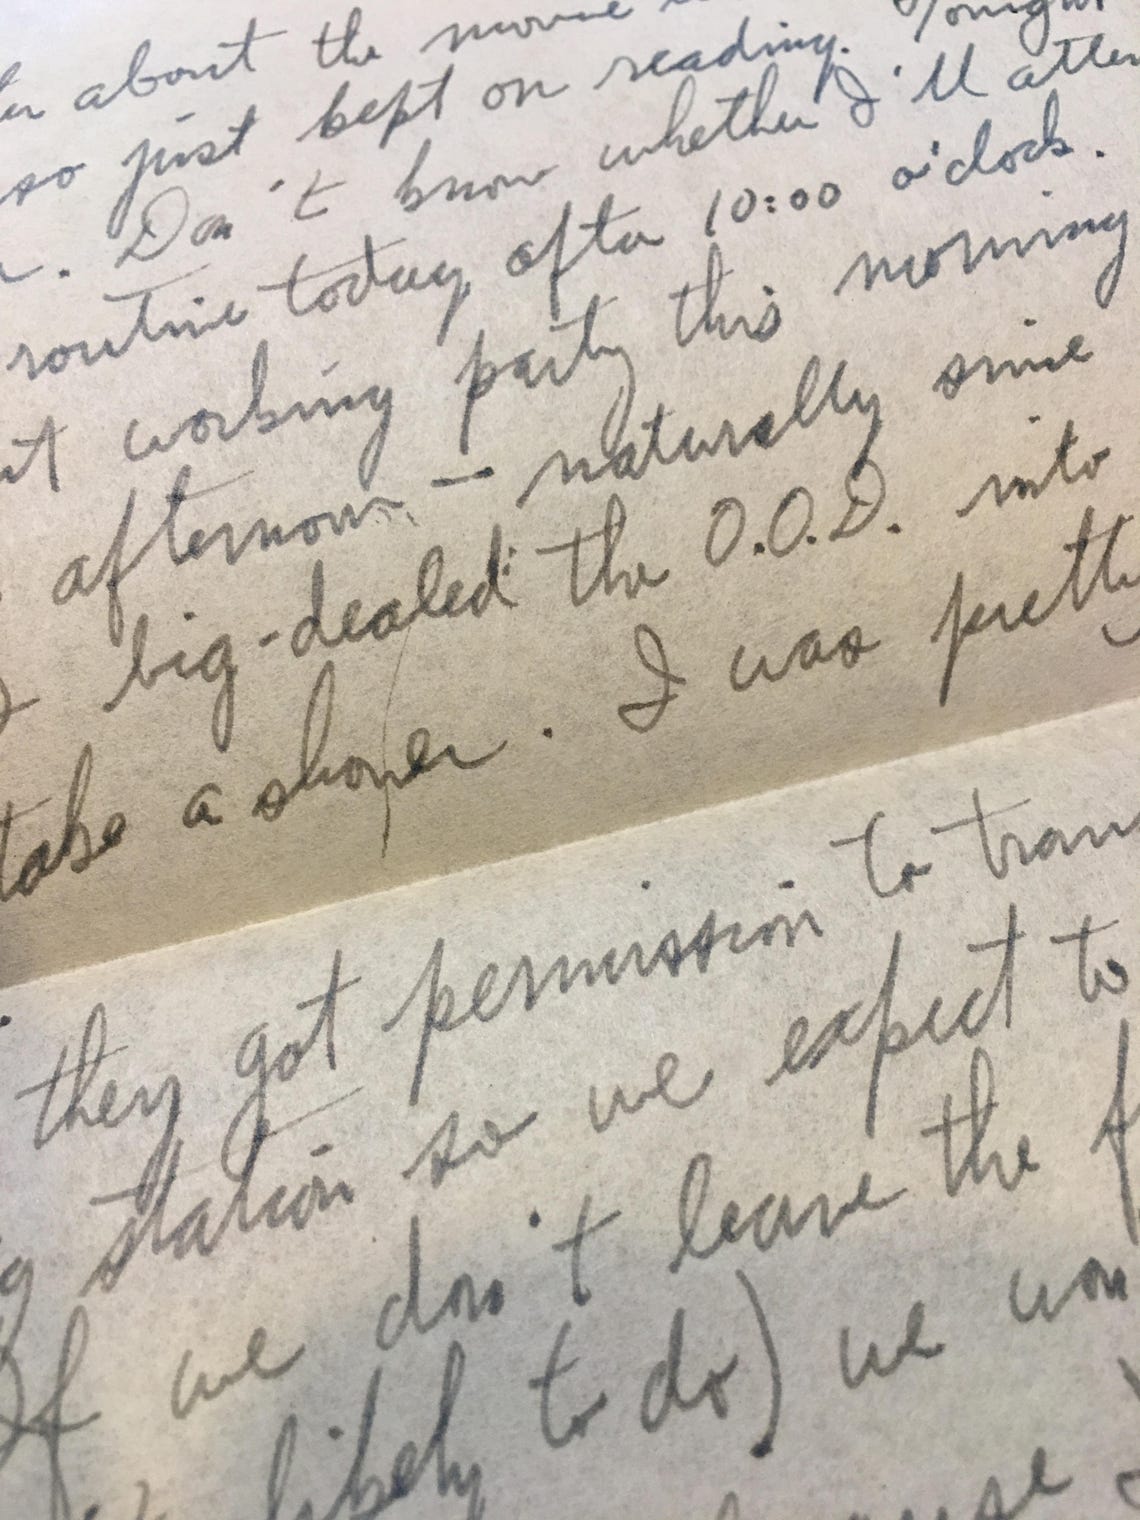 about the movie
so just kept on reading. Tonight
. Don't know whether I'll atten
routine today after 10:00 o'clock.
working party this morning
afternoon — naturally since
big-dealed the O.O.D. into
take a shower. I was pretty
they got permission to tran
station so we expect to
If we don't leave the f
likely to do) we won